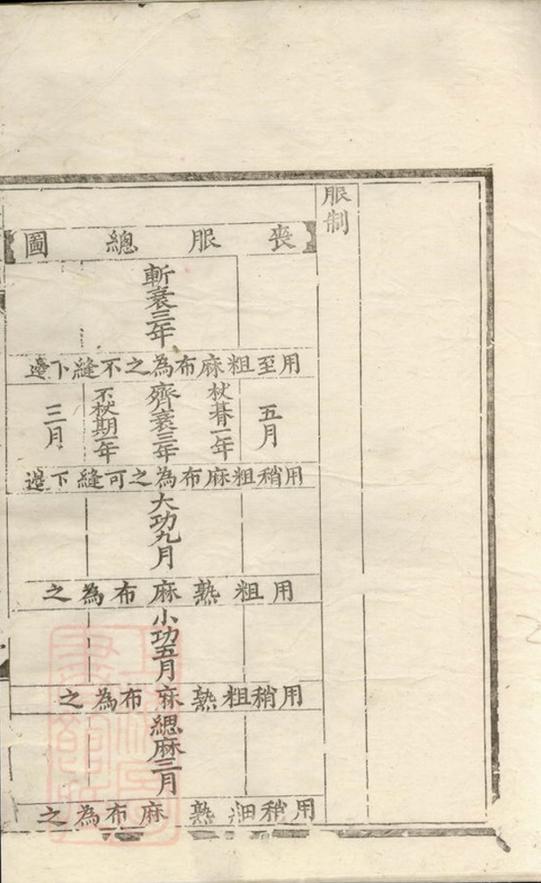 服制
喪服總圖
斬衰三年
用至粗麻布為之不縫下邊
五月
杖朞一年
齊衰三年
不杖期一年
三月
用稍粗麻布為之可縫下邊
大功九月
用粗熟麻布為之
小功五月
用稍粗熟麻布為之
緦麻三月
用稍細熟麻布為之